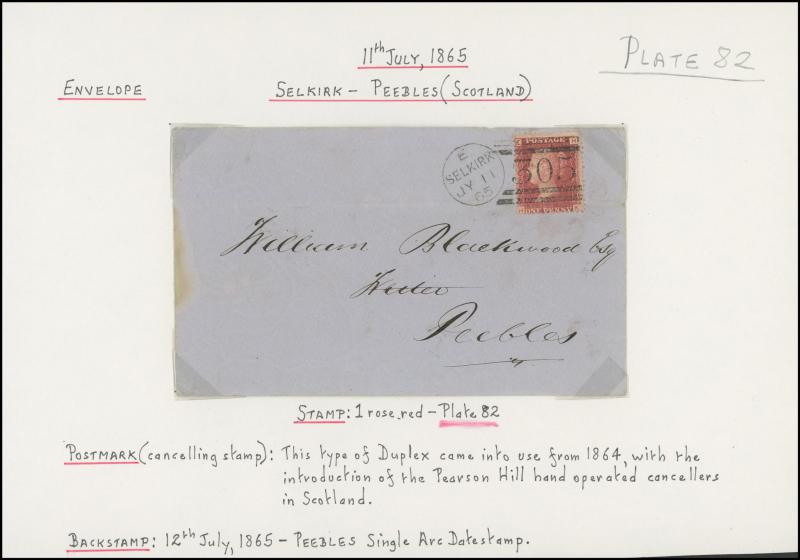 11th JULY, 1865
PLATE 82
ENVELOPE
SELKIRK - PEEBLES (SCOTLAND)
E
SELKIRK
JY 11
65
POSTAGE
305
ONE PENNY
William Blackwood Esq
Writer
Peebles
STAMP: 1 rose-red - Plate 82
POSTMARK (cancelling stamp): This type of Duplex came into use from 1864, with the
introduction of the Pearson Hill hand operated cancellers
in Scotland.
BACKSTAMP: 12th July, 1865 - PEEBLES Single Arc Datestamp.